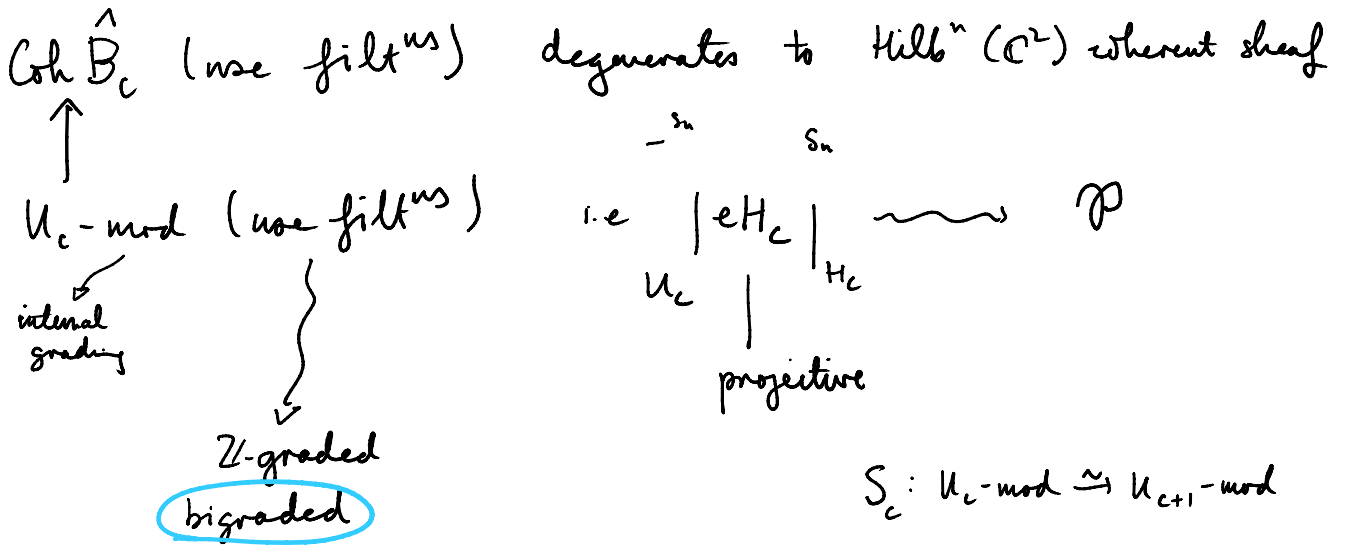 Coh B̂_c (use filt^ns) degenerates to Hilb^n (ℂ²) coherent sheaf
-^{S_n} S_n
U_c-mod (use filt^ns) i.e | eH_c | ⇝ 𝒫
U_c H_c
internal grading
projective
ℤ-graded
bigraded
S_c : U_c-mod ⥲ U_{c+1}-mod